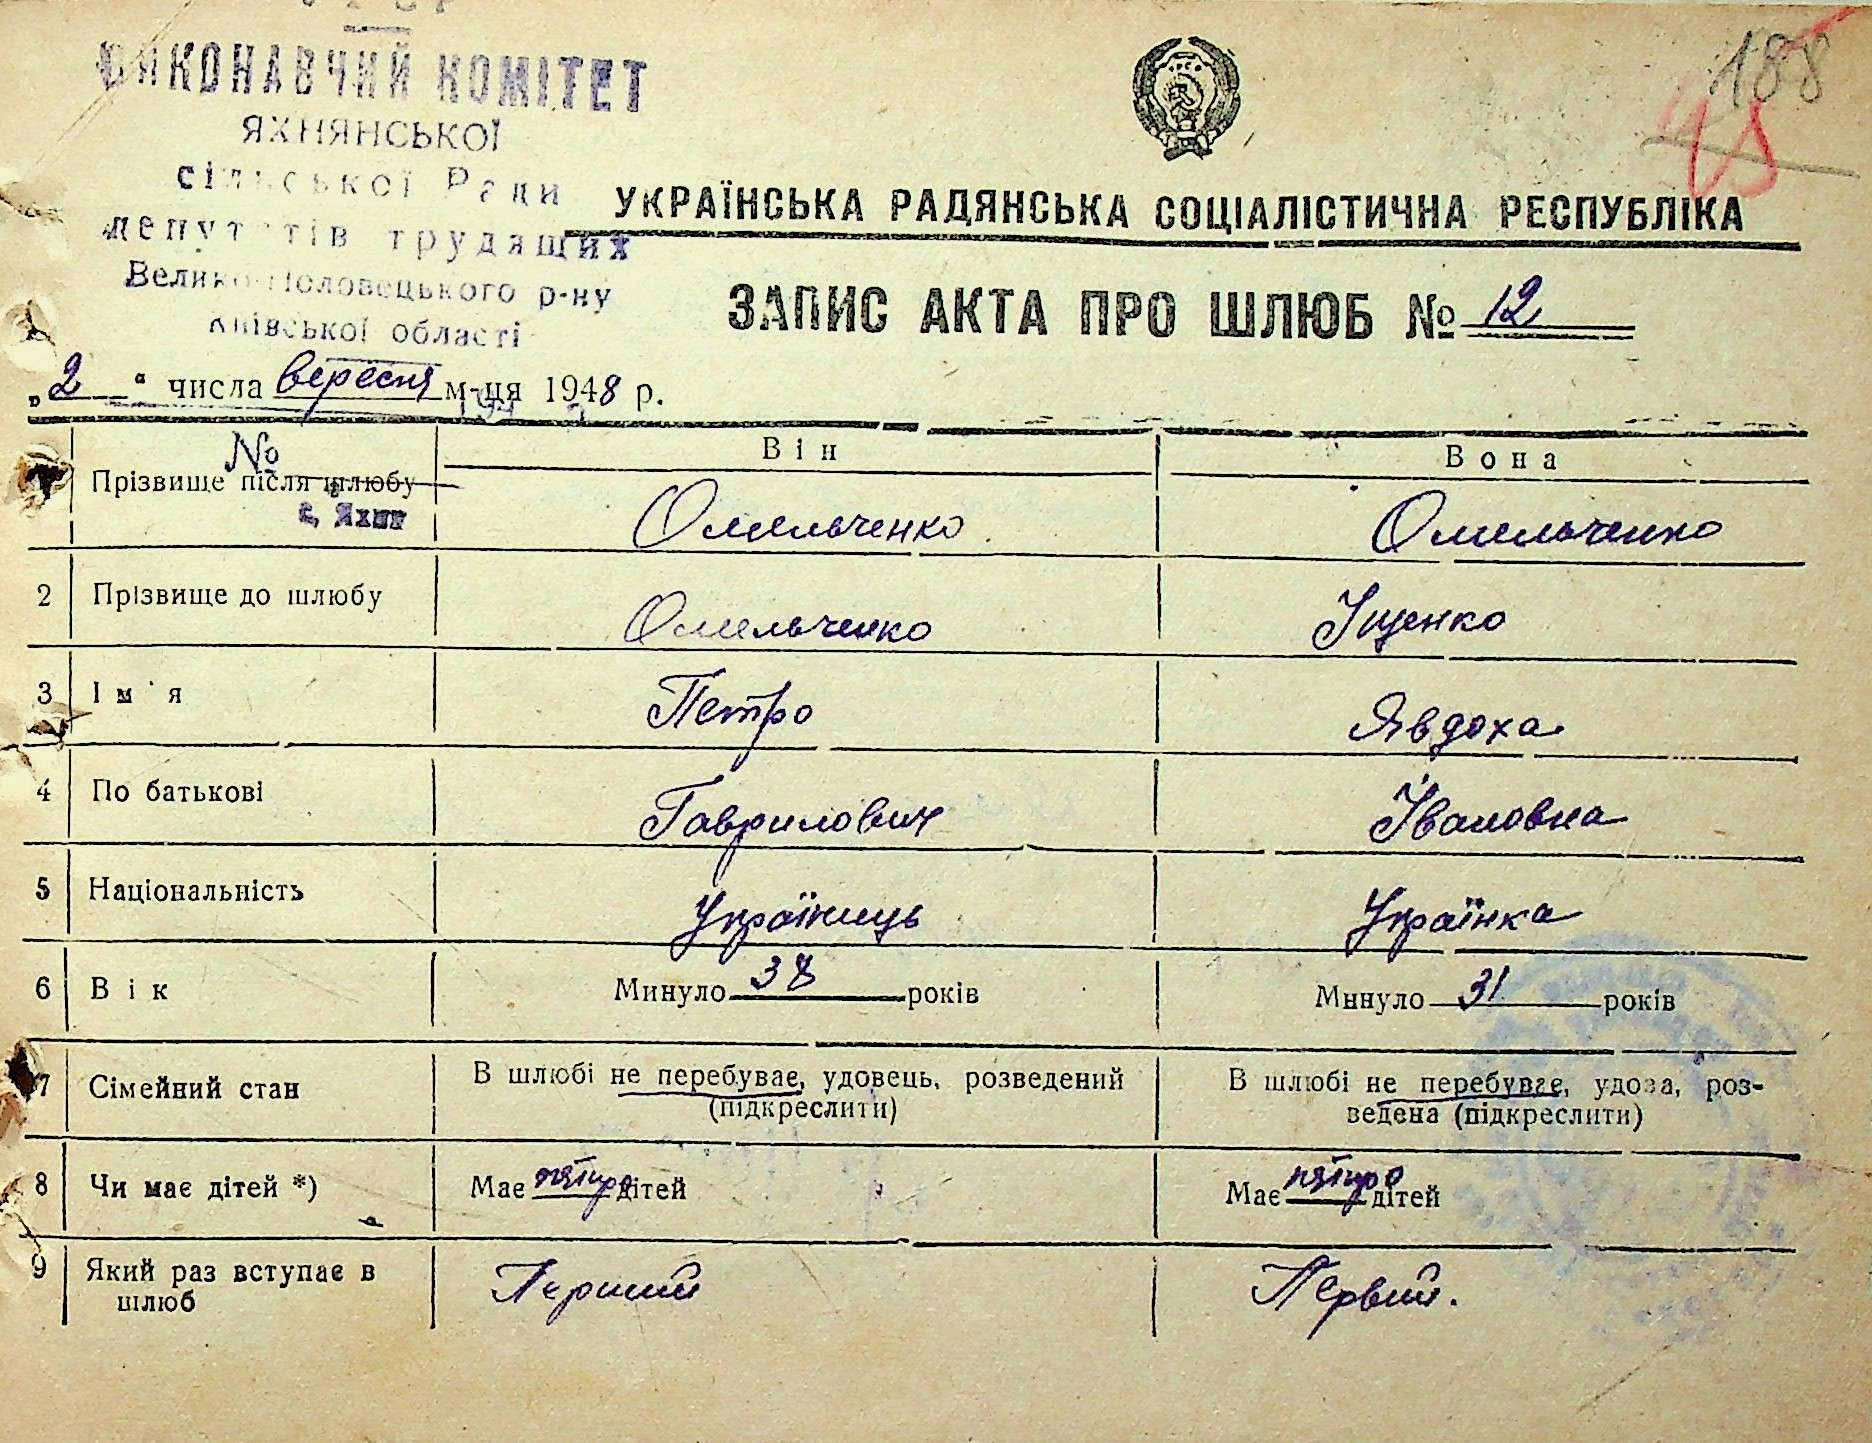 ВИКОНАВЧИЙ КОМІТЕТ
ЯХНЯНСЬКОЇ
сільської Ради
депутатів трудящих
Велико-Половецького р-ну
Київської області
188
УКРАЇНСЬКА РАДЯНСЬКА СОЦІАЛІСТИЧНА РЕСПУБЛІКА
ЗАПИС АКТА ПРО ШЛЮБ № 12
„2“ числа вересня м-ця 1948 р.
№
Він Вона
Прізвище після шлюбу Омельченко Омельченко
с. Яхни
2 Прізвище до шлюбу Омельченко Іщенко
3 Ім'я Петро Явдоха
4 По батькові Гаврилович Івановна
5 Національність Українець Українка
6 Вік Минуло 38 років Минуло 31 років
7 Сімейний стан В шлюбі не перебуває, удовець, розведений (підкреслити) В шлюбі не перебуває, удова, роз-
ведена (підкреслити)
8 Чи має дітей *) Має пятиро дітей Має пятиро дітей
9 Який раз вступає в шлюб Перший Первий.